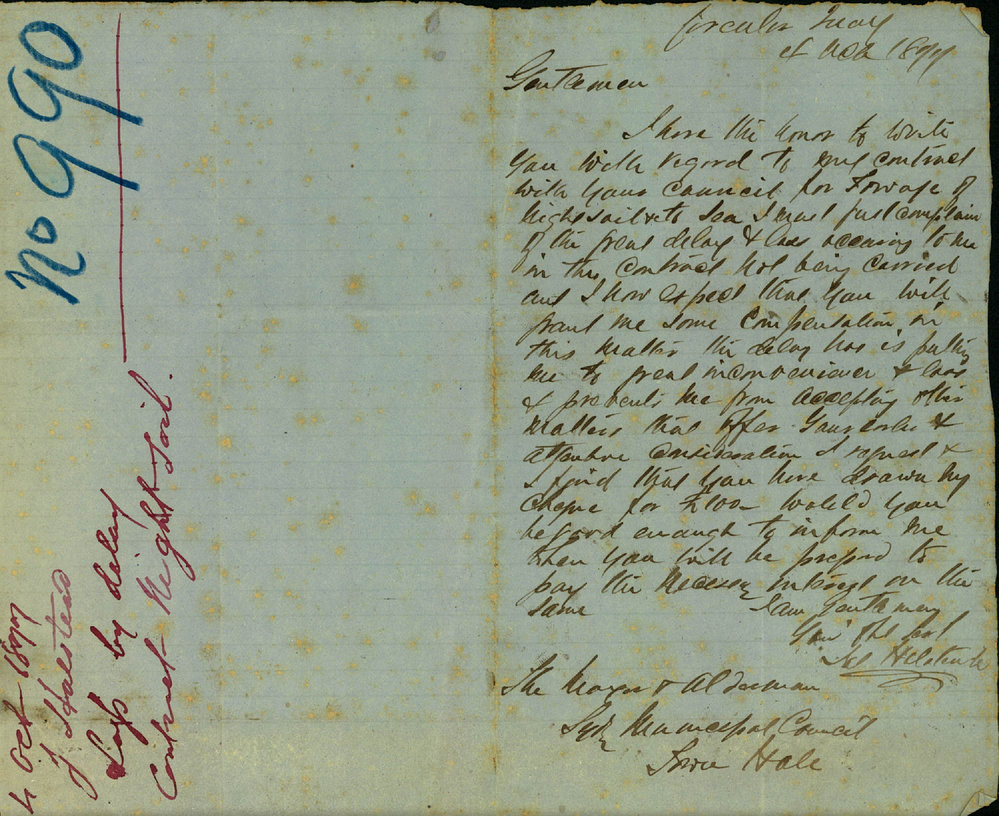 No 990
4 Oct 1877
J Halstead
Loss by delay
Contract Night Soil.
Circular Quay
4 Oct 1877
Gentlemen
I have the honor to write
you with regard to my contract
with your Council for Towage of
Nightsoil &c to Sea I must just complain
of the great delay & loss occuring to me
in the contract not being carried
out I now expect that you will
grant me some Compensation in
this matter the delay has is putting
me to great inconvenience & loss
& prevents me from accepting other
matters that offer Your early &
attentive consideration I request &
I find that you have drawn my
cheque for £100 – would you
be good enough to inform me
when you will be prepared to
pay the necessy interest on the
same I am Gentlemen
Your Obt Svt
Jas Halstead
The Mayor & Alderman
Syd Municipal Council
Town Hall